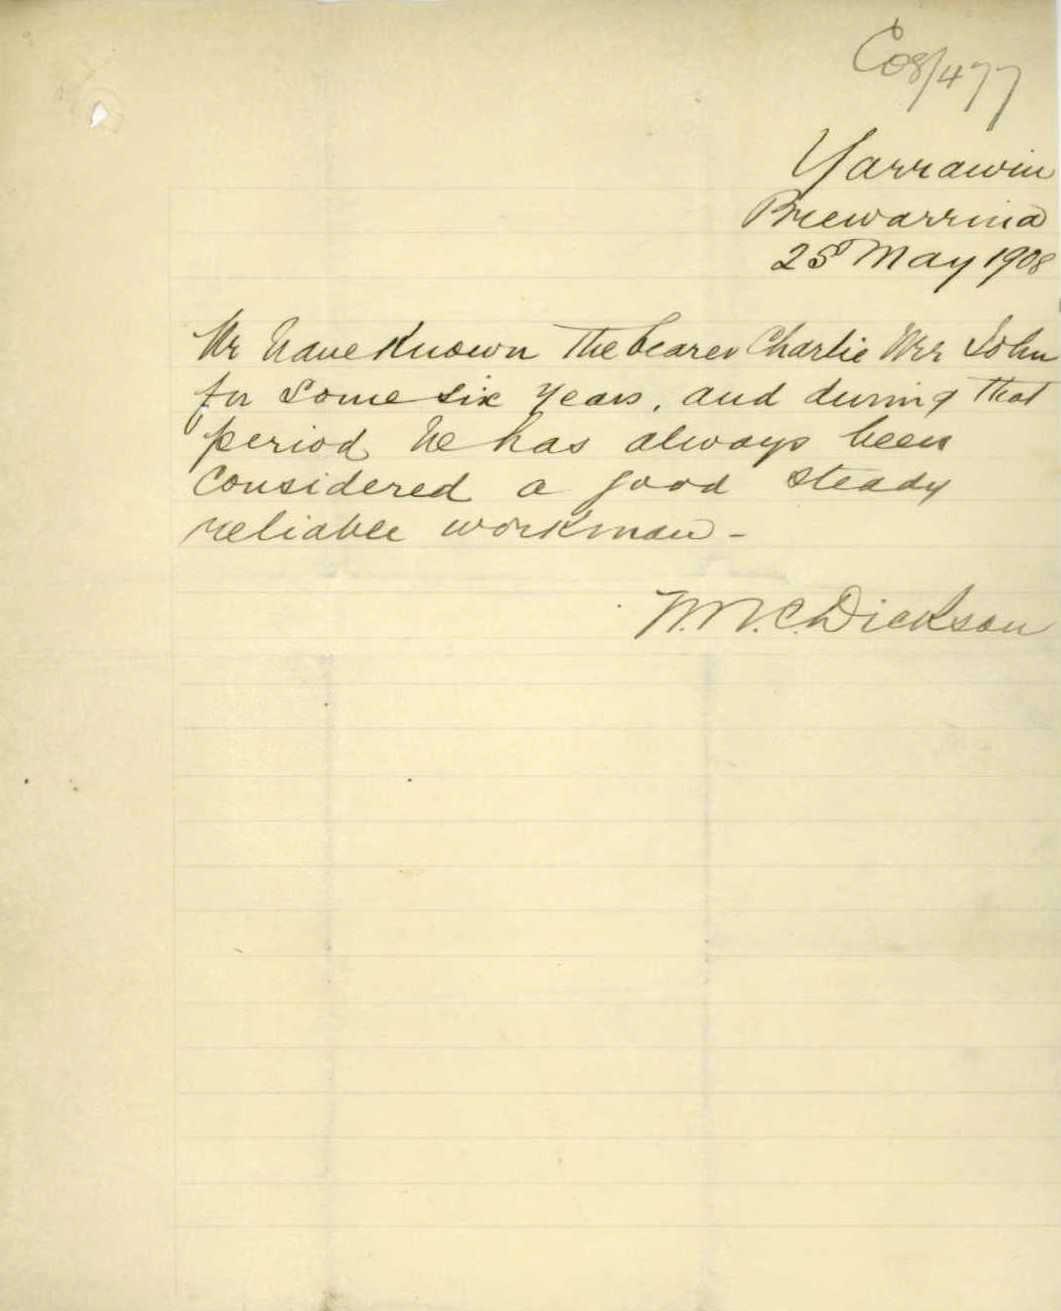 C08/477
Yarrawin
Brewarrina
25 May 1908
We have known the bearer Charlie John
for some six years, and during that
period he has always been
considered a good steady
reliable workman -
W.W.C. Dickson